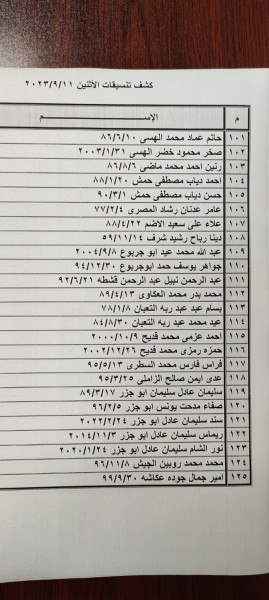 كشف تنسيقات الأثنين ٢٠٢٣/٩/١١
م الإســـــــم
١٠١ حاتم عماد محمد الهسي ٨٦/٦/١٠
١٠٢ صخر محمود خضر الهسي ٢٠٠٣/١/٣١
١٠٣ رنين احمد محمد ماضي ٨٦/٨/٦
١٠٤ احمد دياب مصطفى حمش ٨٨/١/٢٠
١٠٥ حسن دياب مصطفى حمش ٩٠/٣/١
١٠٦ عامر عدنان رشاد المصرى ٧٧/٢/٤
١٠٧ علاء على سعيد الاضم ٨٨/٤/٢٢
١٠٨ دينا رباح رشيد شرف ٥٩/١١/١٤
١٠٩ عبد الله محمد عيد ابو جربوع ٢٠٠٤/٩/٨
١١٠ جواهر يوسف حمد ابوجربوع ٩٤/١٢/٣٠
١١١ عبد الرحمن نبيل عبد الرحمن قشطه ٩٢/٦/٢١
١١٢ محمد بدر محمد العكاوى ٨٩/٤/١٣
١١٣ بسام عيد عبد ربه التعبان ٧٨/١/٨
١١٤ عيد محمد عبد ربه التعبان ٨٤/٨/٣٠
١١٥ احمد عزمى محمد قديح ٢٠٠٠/١٠/٩
١١٦ حمزه رمزى محمد قديح ٢٠٠٢/١٢/٢٦
١١٧ فراس فارس محمد السطرى ٩٥/٥/١٣
١١٨ عدى ايمن صالح الزاملى ٩٥/٣/٢٥
١١٩ سليمان عادل سليمان ابو جزر ٨٩/٣/١٧
١٢٠ صفاء مدحت يونس ابو جزر ٩٦/٢/٥
١٢١ سند سليمان عادل ابوجزر ٢٠٢٢/٢/٢٤
١٢٢ ريماس سليمان عادل ابو جزر ٢٠١٤/١١/٣
١٢٣ نور الشام سليمان عادل ابو جزر ٢٠٢٠/١/٢٤
١٢٤ محمد محمد روبين الجيش ٩٦/١١/٨
١٢٥ امير جمال جوده عكاشه ٩٩/٩/٣٠